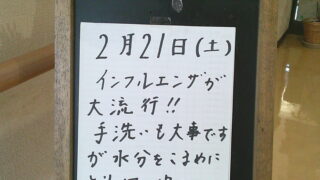 2月21日(土)
インフルエンザが
大流行!!
手洗いも大事です
が水分をこまめに